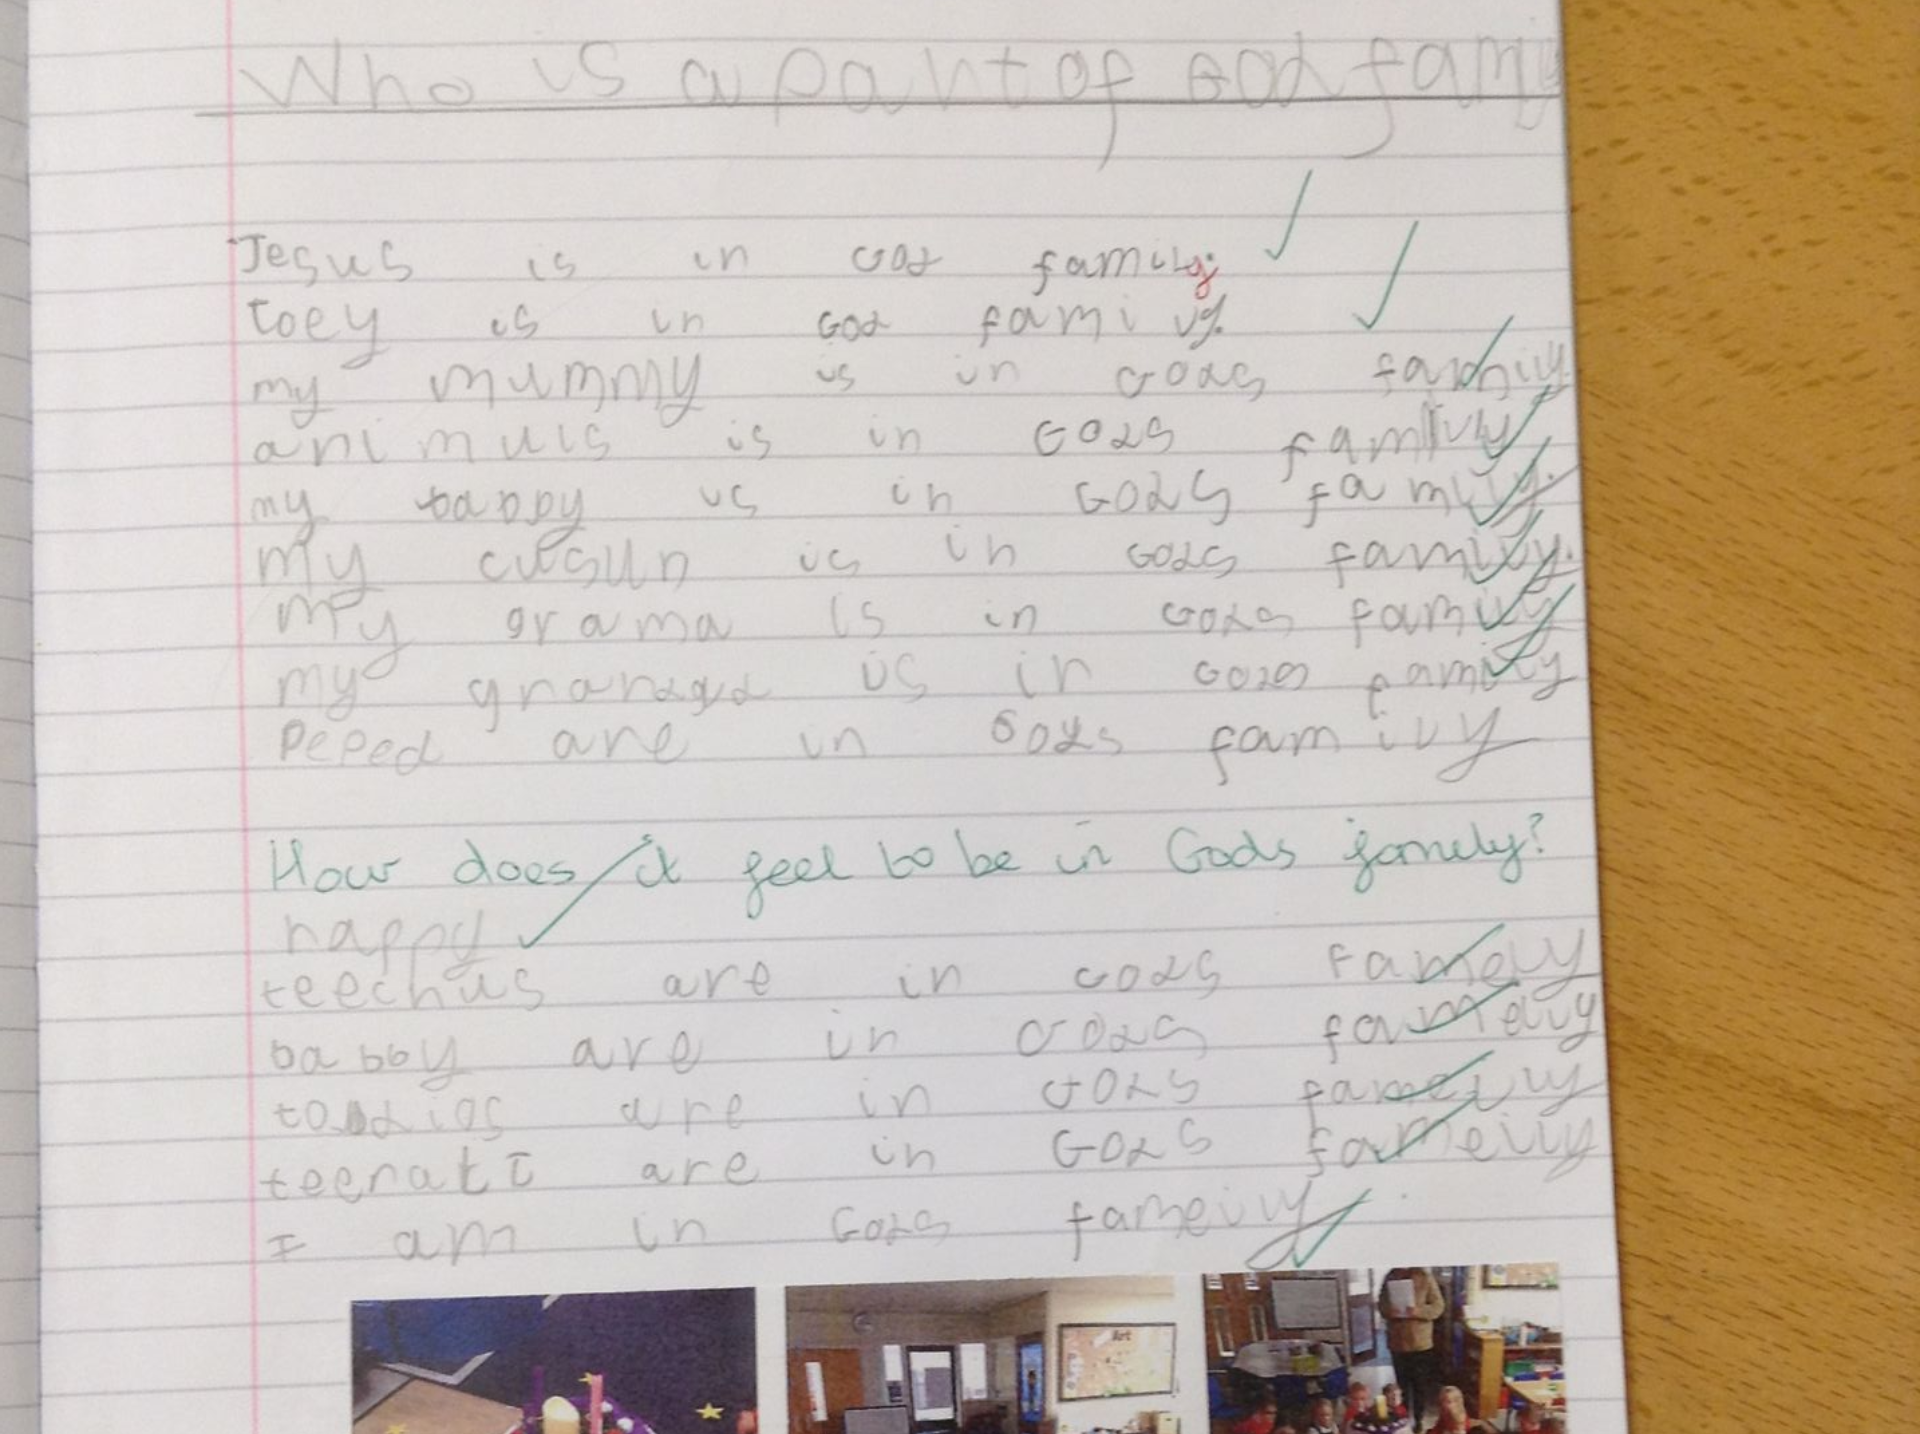 Who is a part of God famy
Jesus is in God family.
toey is in God family.
my mummy is in Gods family
animuls is in Gods family
my is in Gods family.
my cusun is in Gods family.
My grama is in Gods family
my is in Gods family
Peped are in Gods family
How does it feel to be in Gods family?
happy
teechus are in Gods famely
babby are in Gods fameily
are in Gods fameily
are in Gods fameily
I am in Gods fameily
Art